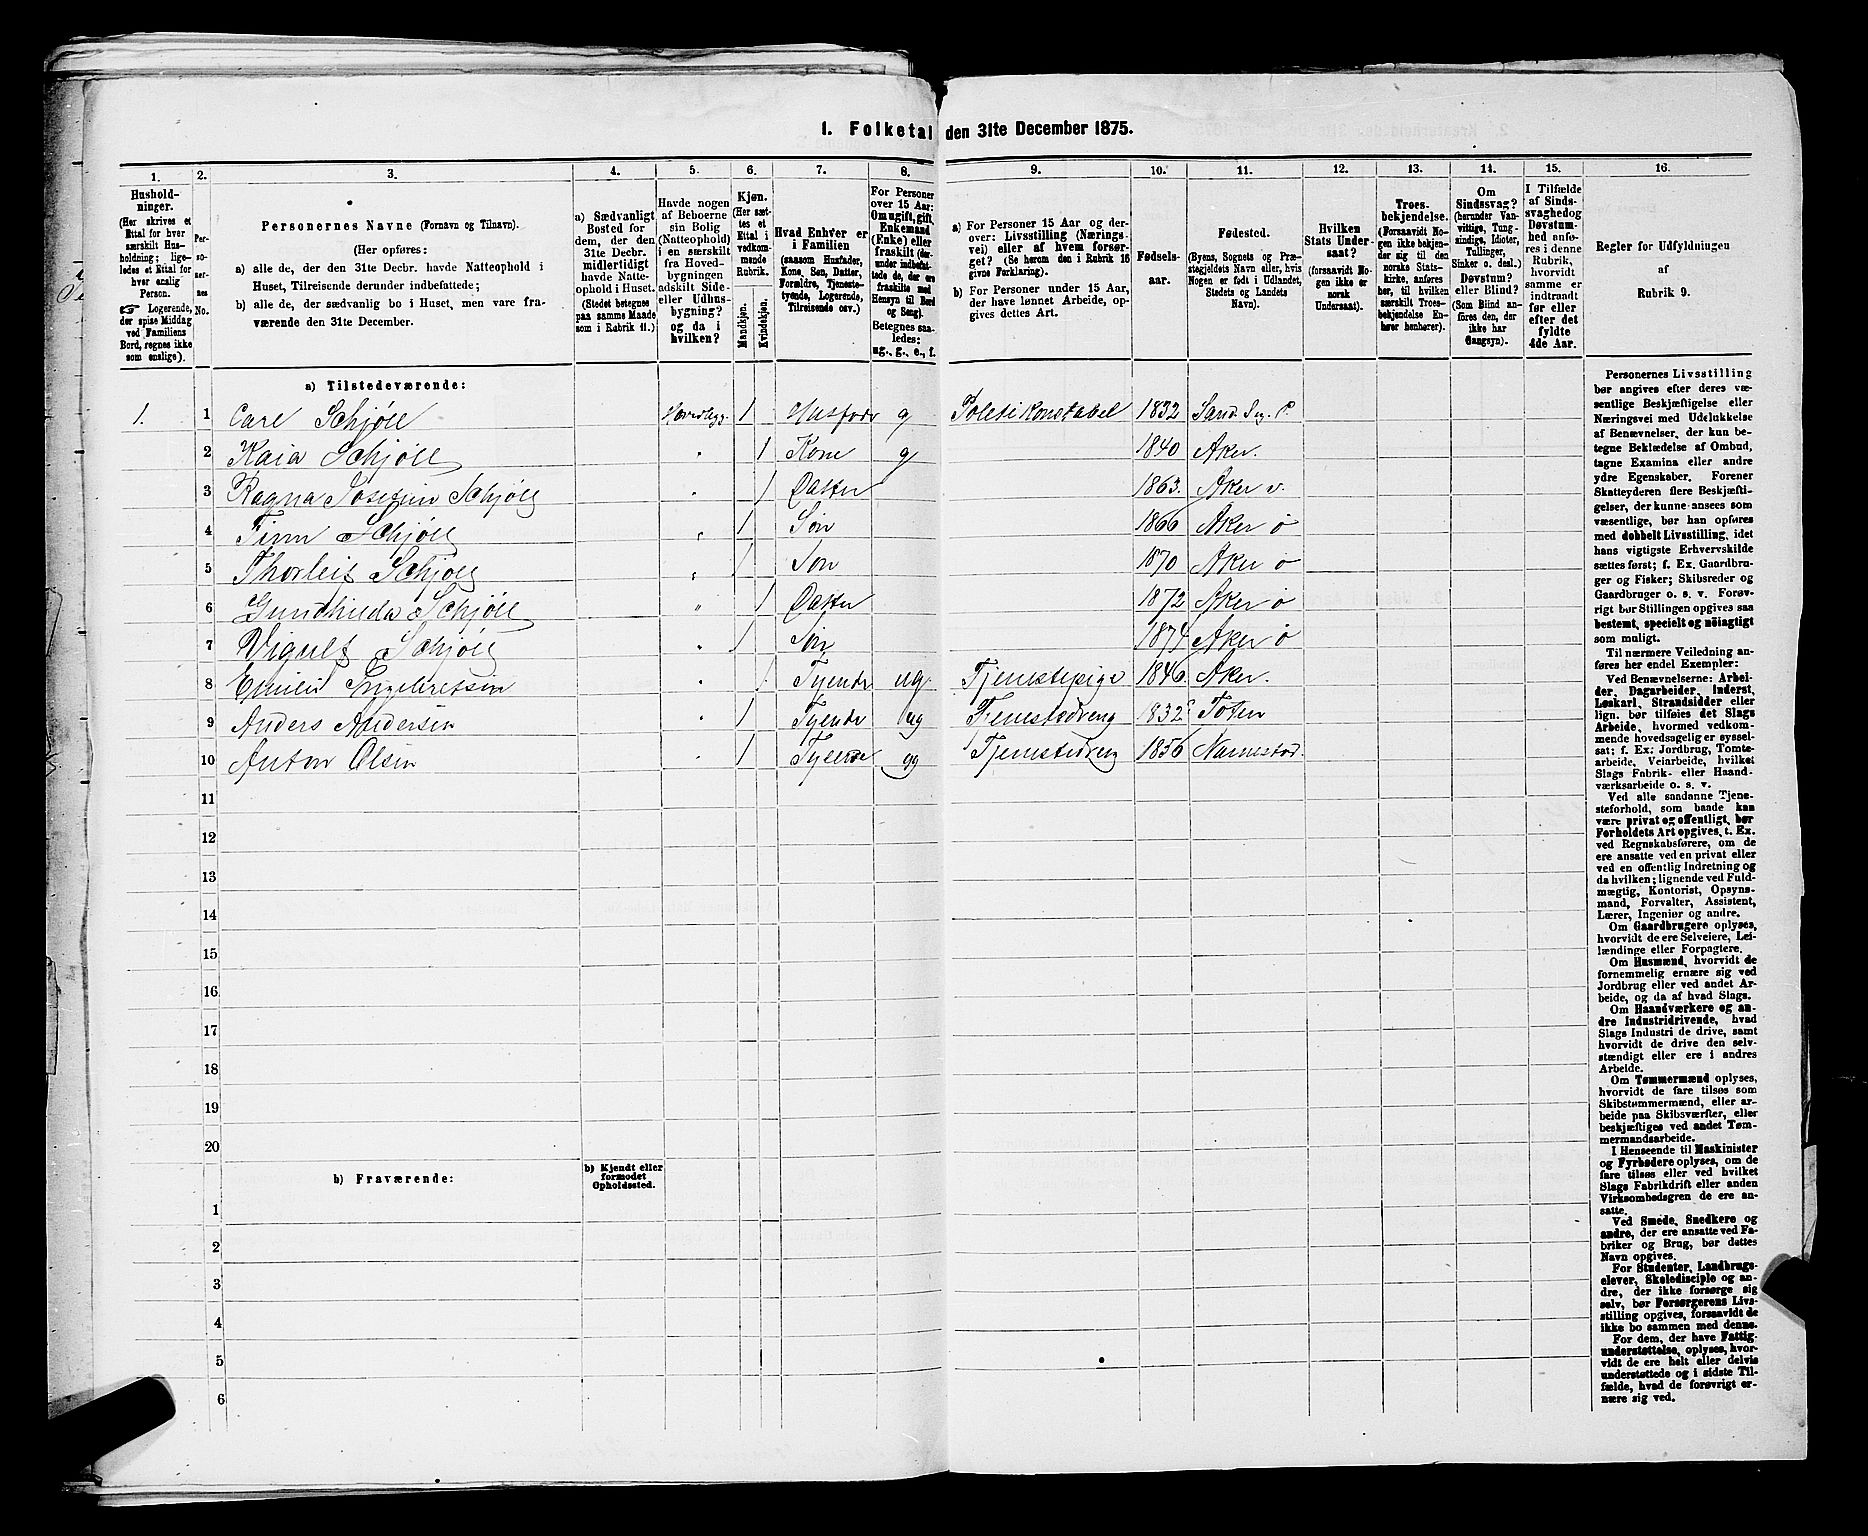 1. Folketal den 31te December 1875.
1. 2. 3. 4. 5. 6. 7. 8. 9. 10. 11. 12. 13. 14. 15. 16.
Hushold-
ninger.
(Her skrives et
Ettal for hver
særskilt Hus-
holdning; lige-
ledes et Ettal for
hver enslig
Person.
☞ Logerende,
der spise Middag
ved Familiens
Bord, regnes ikke
som enslige).
Per-
so-
ner-
nes
No.
Personernes Navne (Fornavn og Tilnavn).
(Her opføres:
a) alle de, der den 31te Decbr. havde Natteophold i
Huset, Tilreisende derunder indbefattede;
b) alle de, der sædvanlig bo i Huset, men vare fra-
værende den 31te December.
a) Sædvanligt
Bosted for
dem, der den
31te Decbr.
midlertidigt
havde Natte-
ophold i Huset.
(Stedet betegnes
paa samme Maade
som i Rubrik 11.)
Havde nogen
af Beboerne
sin Bolig
(Natteophold)
i en særskilt
fra Hoved-
bygningen
adskilt Side-
eller Udhus-
bygning?
og da i
hvilken?
Kjøn.
(Her sæt-
tes et
Ettal i
vedkom-
mende
Rubrik.
Mandkjøn.
Kvindekjøn.
Hvad Enhver er
i Familien
(saasom Husfader,
Kone, Søn, Datter,
Forældre, Tjeneste-
tyende, Logerende,
Tilreisende osv.)
For Personer
over 15 Aar:
Om ugift, gift,
Enkemand
(Enke) eller
fraskilt (der-
under indbefat-
tede de, der ere
fraskilte med
Hensyn til Bord
og Seng).
Betegnes saa-
ledes:
ug., g., e., f.
a) For Personer 15 Aar og der-
over: Livsstilling (Nærings-
vei) eller af hvem forsør-
get? (Se herom den i Rubrik 16
givne Forklaring).
b) For Personer under 15 Aar,
der have lønnet Arbeide, op-
gives dettes Art.
Fødsels-
aar.
Fødested.
(Byens, Sognets og Præ-
stegjeldets Navn eller, hvis
Nogen er født i Udlandet,
Stedets og Landets
Navn).
Hvilken
Stats Under-
saat?
(forsaavidt No-
gen ikke er
norsk
Undersaat).
Troes-
bekjendelse.
(Forsaavidt No-
gen ikke bekjen-
der sig til den
norske Stats-
kirke, anføres
her, til hvilken
særskilt Troes-
bekjendelse En-
hver henhører).
Om
Sindssvag?
(herunder Van-
vittige, Tung-
sindige, Idioter,
Tullinger,
Sinker o. desl.)
Døvstum?
eller Blind?
(Som Blind an-
føres den, der
ikke har
Gangsyn).
I Tilfælde
af Sinds-
svaghed og
Døvstum-
hed anfø-
res i denne
Rubrik,
hvorvidt
samme er
indtraadt
før eller
efter det
fyldte
4de Aar.
Regler for Udfyldningen
af
Rubrik 9.
a) Tilstedeværende:
1. 1 Carl Schjøll Hovedbyg. 1 Husfader g Politikonstabel 1832 Sand Sg. P.
2 Kaia Schjøll " 1 Kone g 1840 Aker.
3 Ragna Josefin Schjøll " 1 Datter 1863. Aker v.
4 Finn Schjøll " 1 Søn 1866 Aker ø
5 Thorleif Schjøll " 1 Søn 1870 Aker ø
6 Gunhilda Schjøll " 1 Datter 1872 Aker ø
7 Schjøll " 1 Søn 1874 Aker ø
8 Emilie Engebretsen " 1 Tyende ug Tjenestepige 1846 Aker.
9 Anders Andersen " 1 Tyende ug Tjenestedreng 1832 Toten
10 Anton Olsen " 1 Tyende ug Tjenestedreng 1856 Nannestad.
11
12
13
14
15
16
17
18
19
20
b) Fraværende:
b) Kjendt eller
formodet
Opholdssted.
1
2
3
4
5
6
Personernes Livsstilling
bør angives efter deres væ-
sentlige Beskjæftigelse eller
Næringsvei med Udelukkelse
af Benævnelser, der kun be-
tegne Beklædelse af Ombud,
tagne Examina eller andre
ydre Egenskaber. Forener
Skatteyderen flere Beskjæfti-
gelser, der kunne ansees som
væsentlige, bør han opføres
med dobbelt Livsstilling, idet
hans vigtigste Erhvervskilde
sættes først; f. Ex. Gaardbru-
ger og Fisker; Skibsreder og
Gaardbruger o. s. v. Forøv-
rigt bør Stillingen opgives saa
bestemt, specielt og nøiagtigt
som muligt.
Til nærmere Veiledning an-
føres her endel Exempler:
Ved Benævnelserne: Arbei-
der, Dagarbeider, Inderst,
Løskarl, Strandsidder eller
lign. bør tilføies det Slags
Arbeide, hvormed vedkom-
mende hovedsagelig er syssel-
sat; f. Ex: Jordbrug, Tomte-
arbeide, Veiarbeide, hvilket
Slags Fabrik- eller Haand-
værksarbeide o. s. v.
Ved alle saadanne Tjene-
steforhold, som baade kan
være privat og offentligt, bør
Forholdets Art opgives, t. Ex.
ved Regnskabsførere, om de
ere ansatte ved en privat eller
ved en offentlig Indretning og
da hvilken; lignende ved Fuld-
mægtig, Kontorist, Opsyns-
mand, Forvalter, Assistent,
Lærer, Ingeniør og andre.
Om Gaardbrugere oplyses,
hvorvidt de ere Selveiere, Lei-
lændinge eller Forpagtere.
Om Husmænd, hvorvidt de
fornemmelig ernære sig ved
Jordbrug eller ved andet Ar-
beide, og da af hvad Slags.
Om Haandværkere og an-
dre Industridrivende, hvad
Slags Industri de drive, samt
hvorvidt de drive den selv-
stændigt eller ere i andres
Arbeide.
Om Tømmermænd oplyses,
hvorvidt de fare tilsøs som
Skibstømmermænd, eller ar-
beide paa Skibsværfter, eller
beskjæftiges ved andet Tøm-
mermandsarbeide.
I Henseende til Maskinister
og Fyrbødere oplyses, om de
fare tilsøs eller ved hvilket
Slags Fabrikdrift eller anden
Virksombedsgren de ere an-
satte.
Ved Smede, Snedkere og
andre, der ere ansatte ved Fa-
briker og Brug, bør dettes
Navn opgives.
For Studenter, Landbrugs-
elever, Skoledisciple og an-
dre, der ikke forsørge sig
selv, bør Forsørgerens Livs-
stilling opgives, forsaavidt de
ikke bo sammen med denne.
For dem, der have Fattig-
understøttelse, oplyses, hvor-
vidt de ere helt eller delvis
understøttede og i sidste Til-
fælde, hvad de forøvrigt er-
nære sig ved.